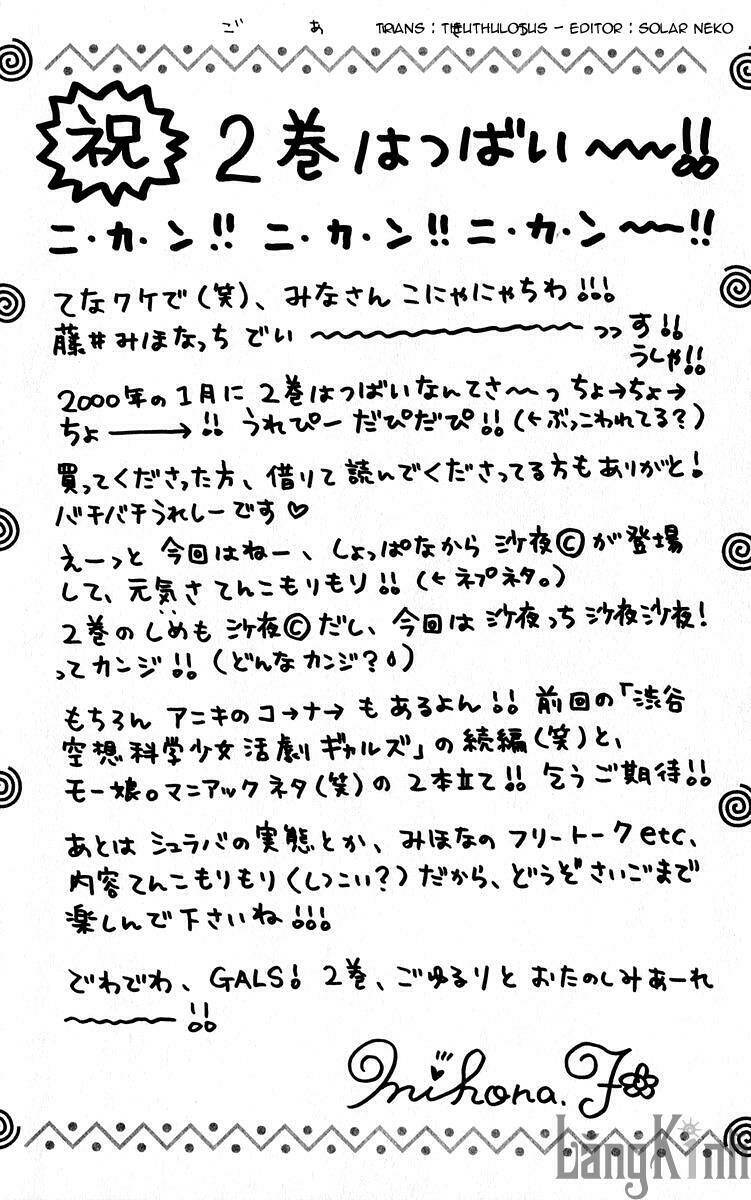 ご あ
TRANS : TIEUTHULOSUS - EDITOR : SOLAR NEKO
祝 2巻はつばい〜〜!!
ニ・カ・ン!! ニ・カ・ン!! ニ・カ・ン〜〜!!
てなワケで(笑)、みなさん こにゃにゃちわ!!!
藤井みほなっち でい〜〜〜〜〜〜〜っっす!!
うしゃ!!
2000年の1月に 2巻はつばいなんてさ〜〜っ ちょ→ちょ→
ちょ——→!! うれぴー だぴだぴ!!(←ぶっこわれてる?)
買ってくださった方、借りて読んでくださってる方もありがと!
バチバチうれしーです♡
えーっと 今回はねー、しょっぱなから 沙夜©が登場
して、元気さてんこもりもり!!(←ネプネタ。)
2巻のしめも 沙夜©だし、今回は 沙夜っち 沙夜沙夜!
ってカンジ!!(どんなカンジ?)
もちろん アニキのコ→ナ→も あるよん!! 前回の「渋谷
空想科学少女活劇ギャルズ」の続編(笑)と、
モー娘。マニアックネタ(笑)の 2本立て!! 乞うご期待!!
あとは シュラバの実態とか、みほなの フリートークetc、
内容てんこもりもり(しつこい?)だから、どうぞさいごまで
楽しんで下さいね!!!
でわでわ、GALS! 2巻、ごゆるりと おたのしみあーれ
〜〜〜〜!!
Mihona.F
LangKinh